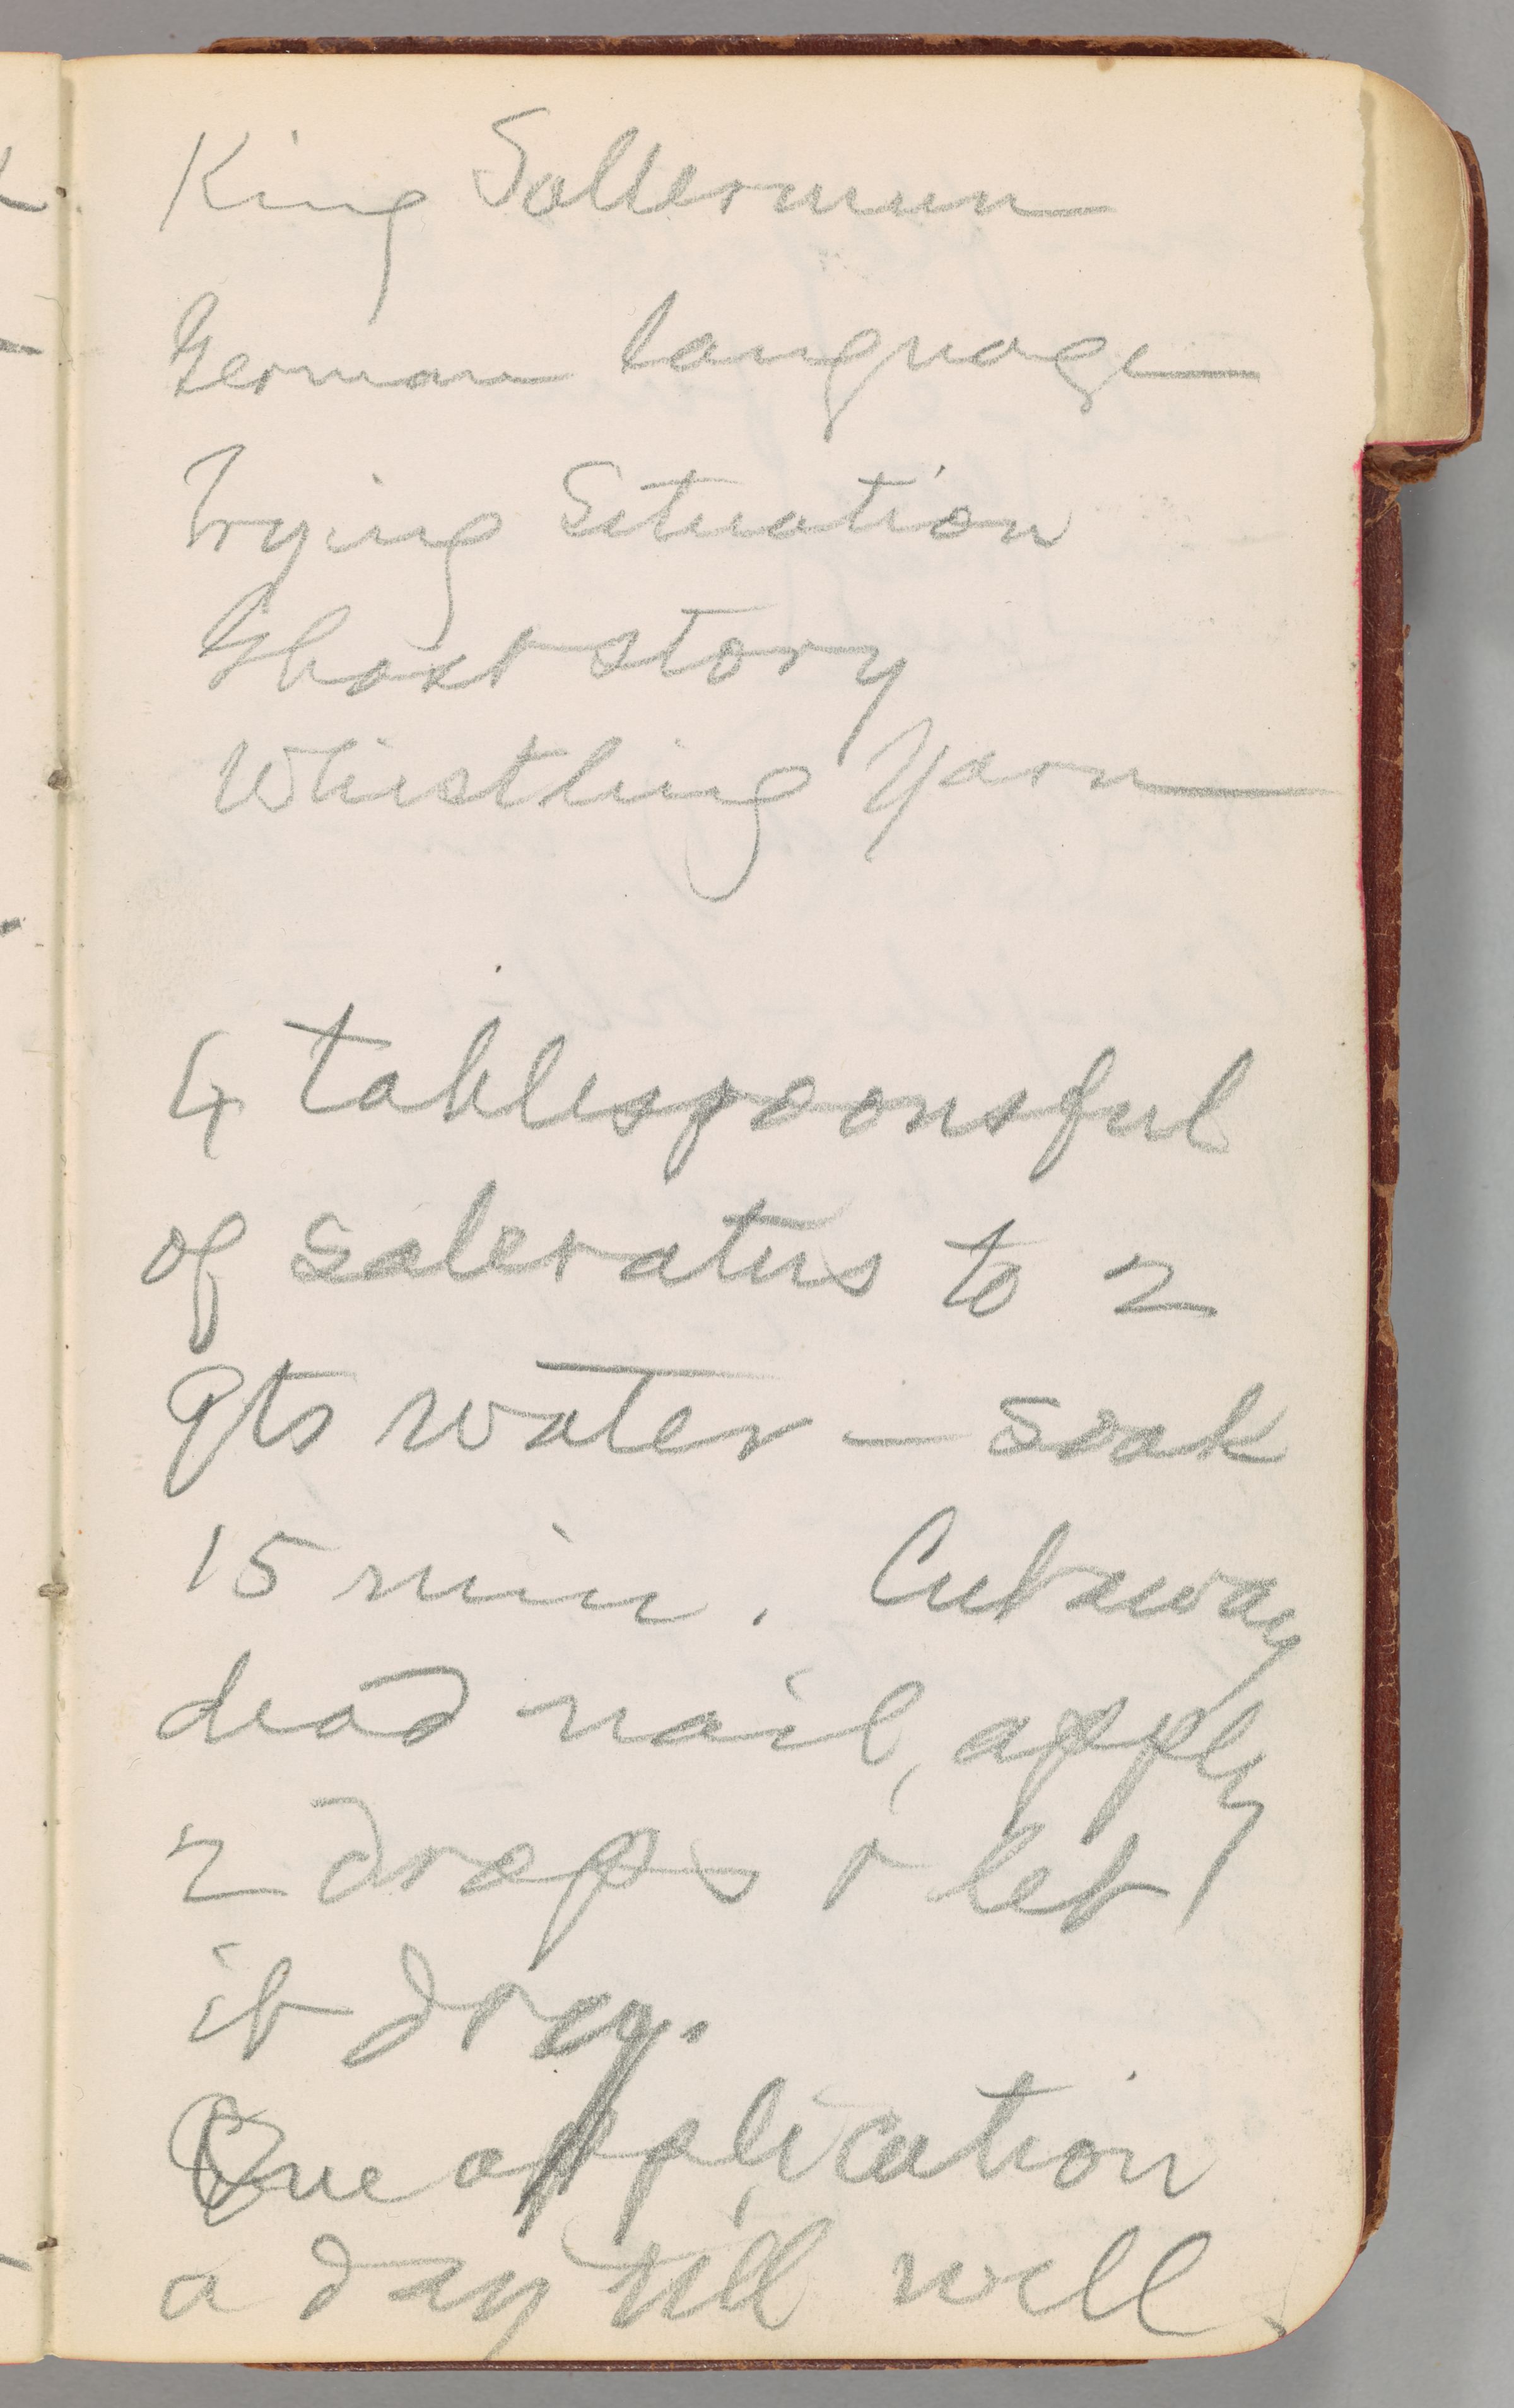 King Sollermun
German language
Trying Situation
Ghost story
Whistling Yarn
4 tablespoonsful
of saleratus to 2
qts water — soak
15 min. Cut away
dead nail, apply
2 drops & let
it dry.
One application
a day till well.